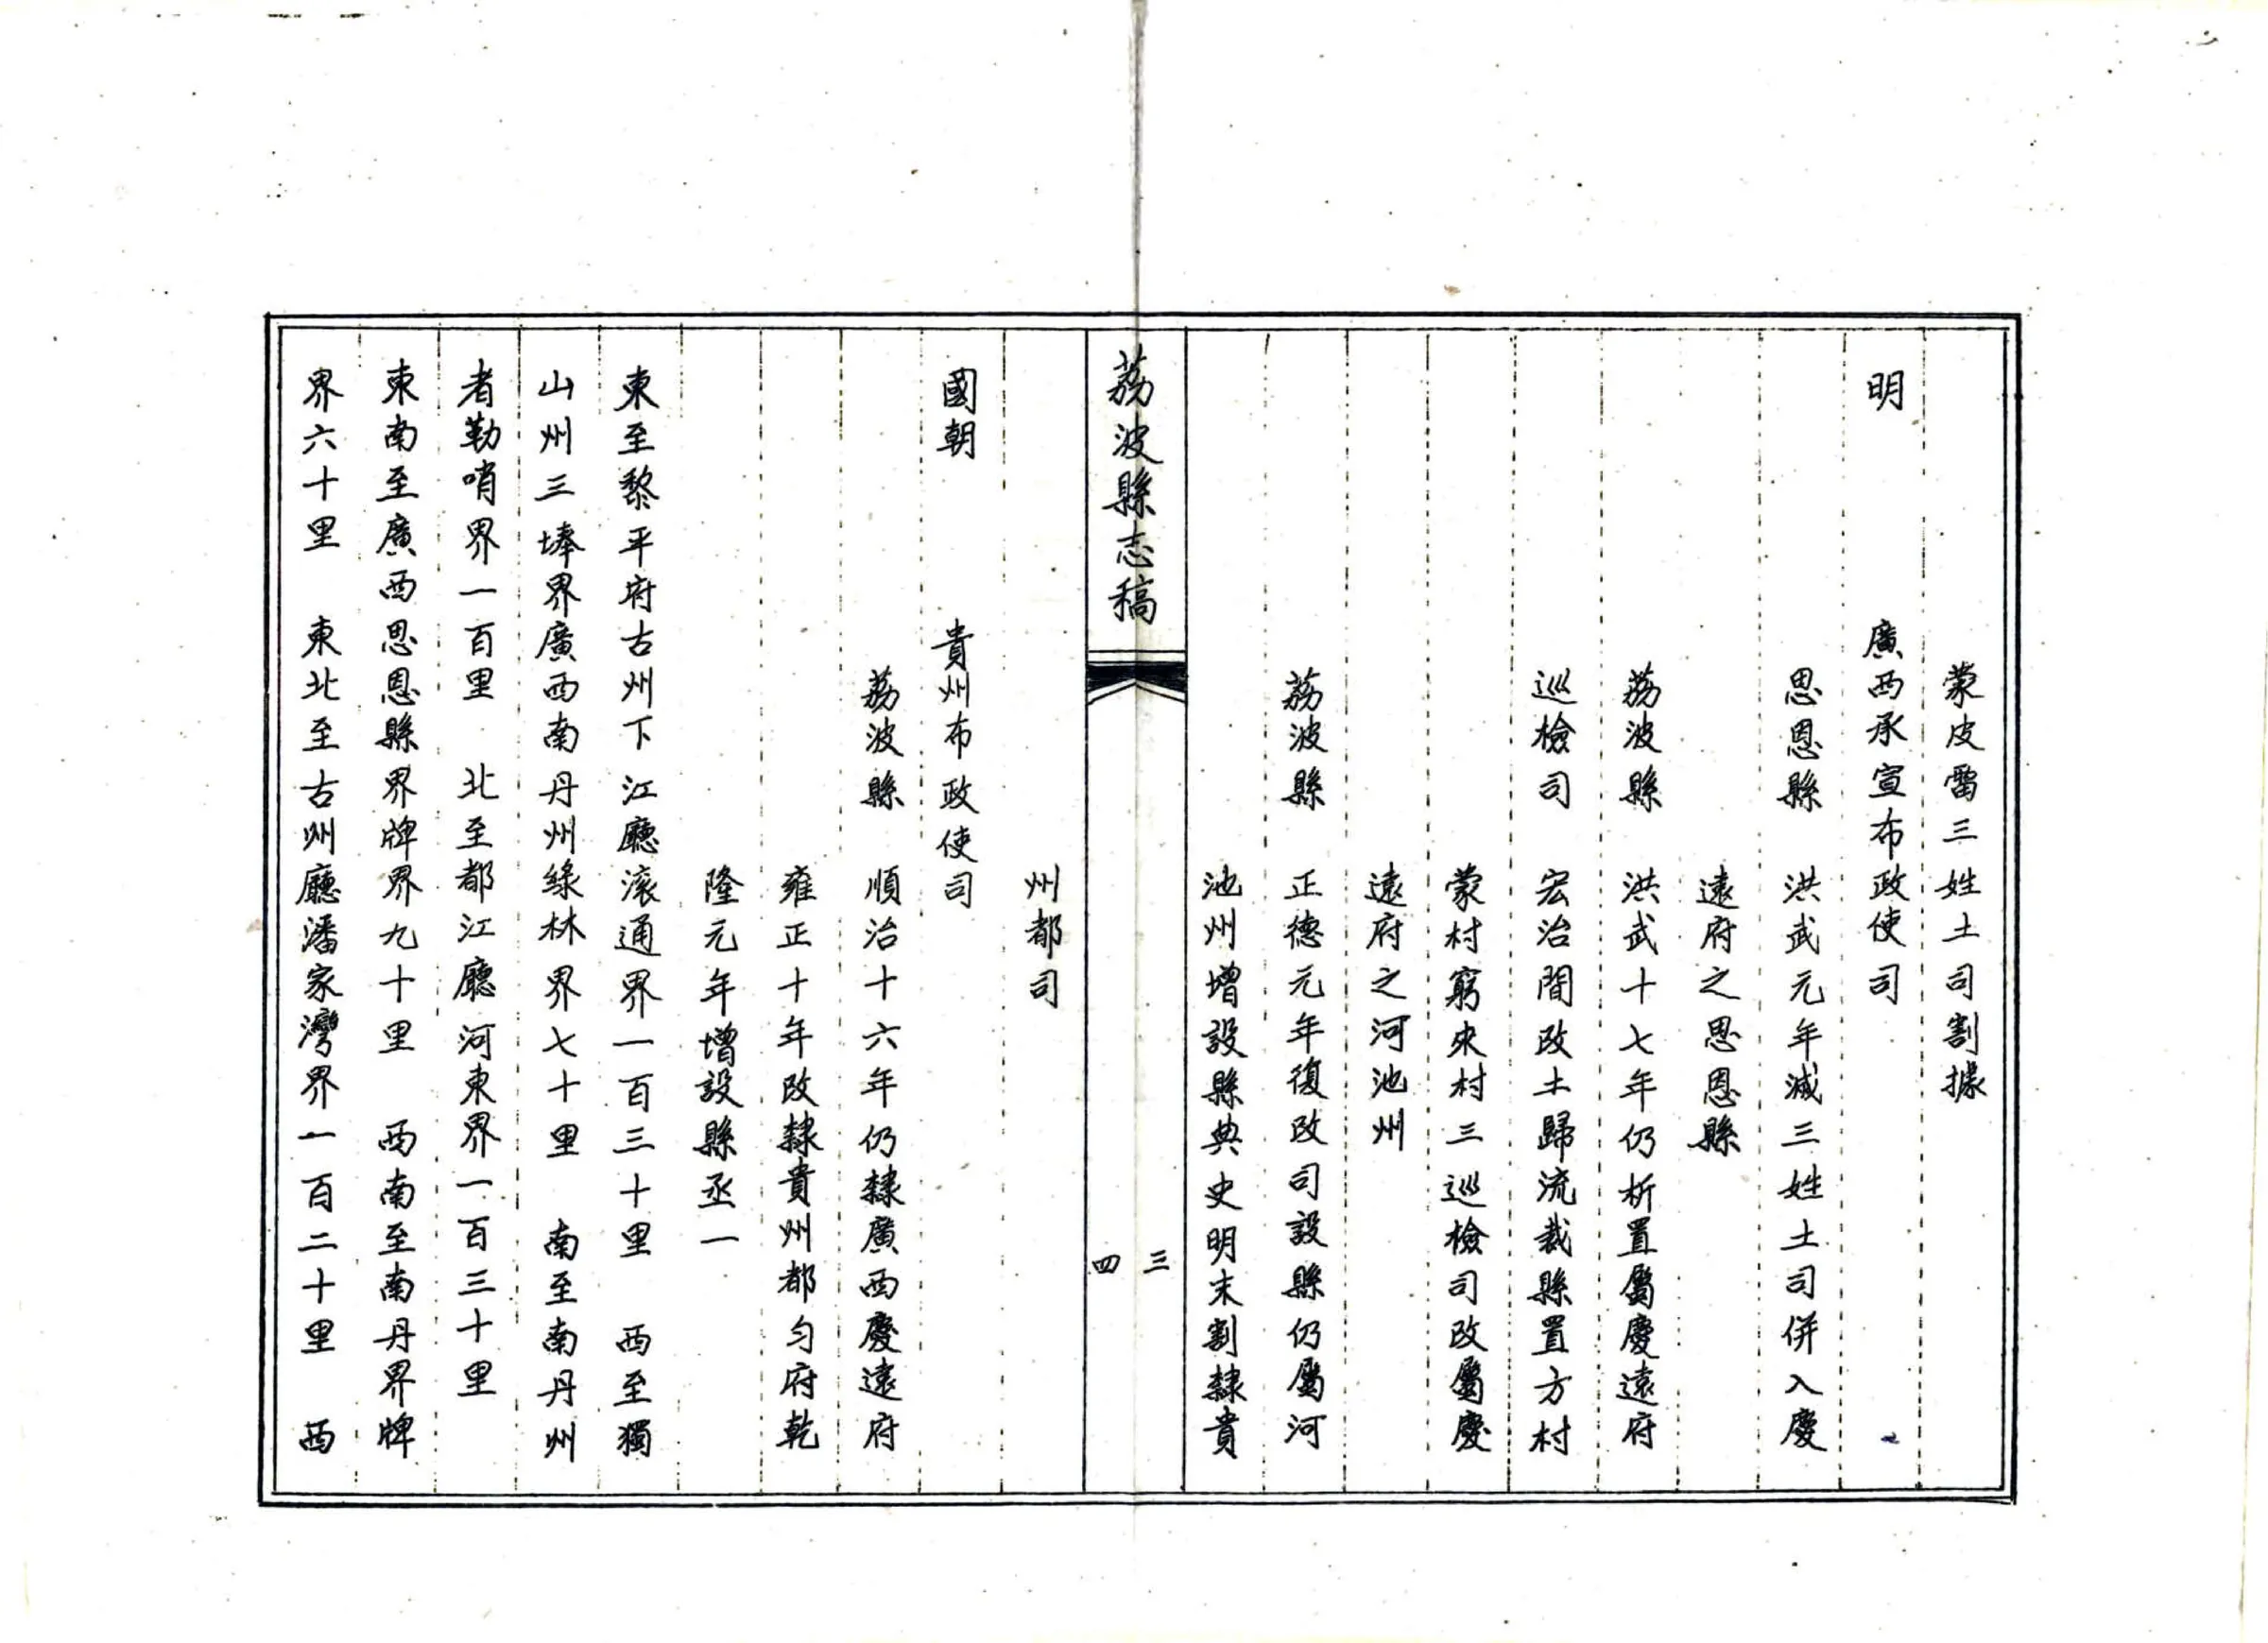 蒙皮雷三姓土司割據
明 廣西承宣布政使司
思恩縣 洪武元年減三姓土司併入慶
遠府之思恩縣
荔波縣 洪武十七年仍析置屬慶遠府
巡檢司 宏治間改土歸流裁縣置方村
蒙村窮來村三巡檢司改屬慶
遠府之河池州
荔波縣 正德元年復改司設縣仍屬河
池州增設縣典史明末割隸貴
荔波縣志稿
三
四
州都司
國朝 貴州布政使司
荔波縣 順治十六年仍隸廣西慶遠府
雍正十年改隸貴州都勻府乾
隆元年增設縣丞一
東至黎平府古州下江廳滚通界一百三十里 西至獨
山州三埲界廣西南丹州綠林界七十里 南至南丹州
者勒哨界一百里 北至都江廳河東界一百三十里
東南至廣西思恩縣界牌界九十里 西南至南丹界牌
界六十里 東北至古州廳潘家灣界一百二十里 西